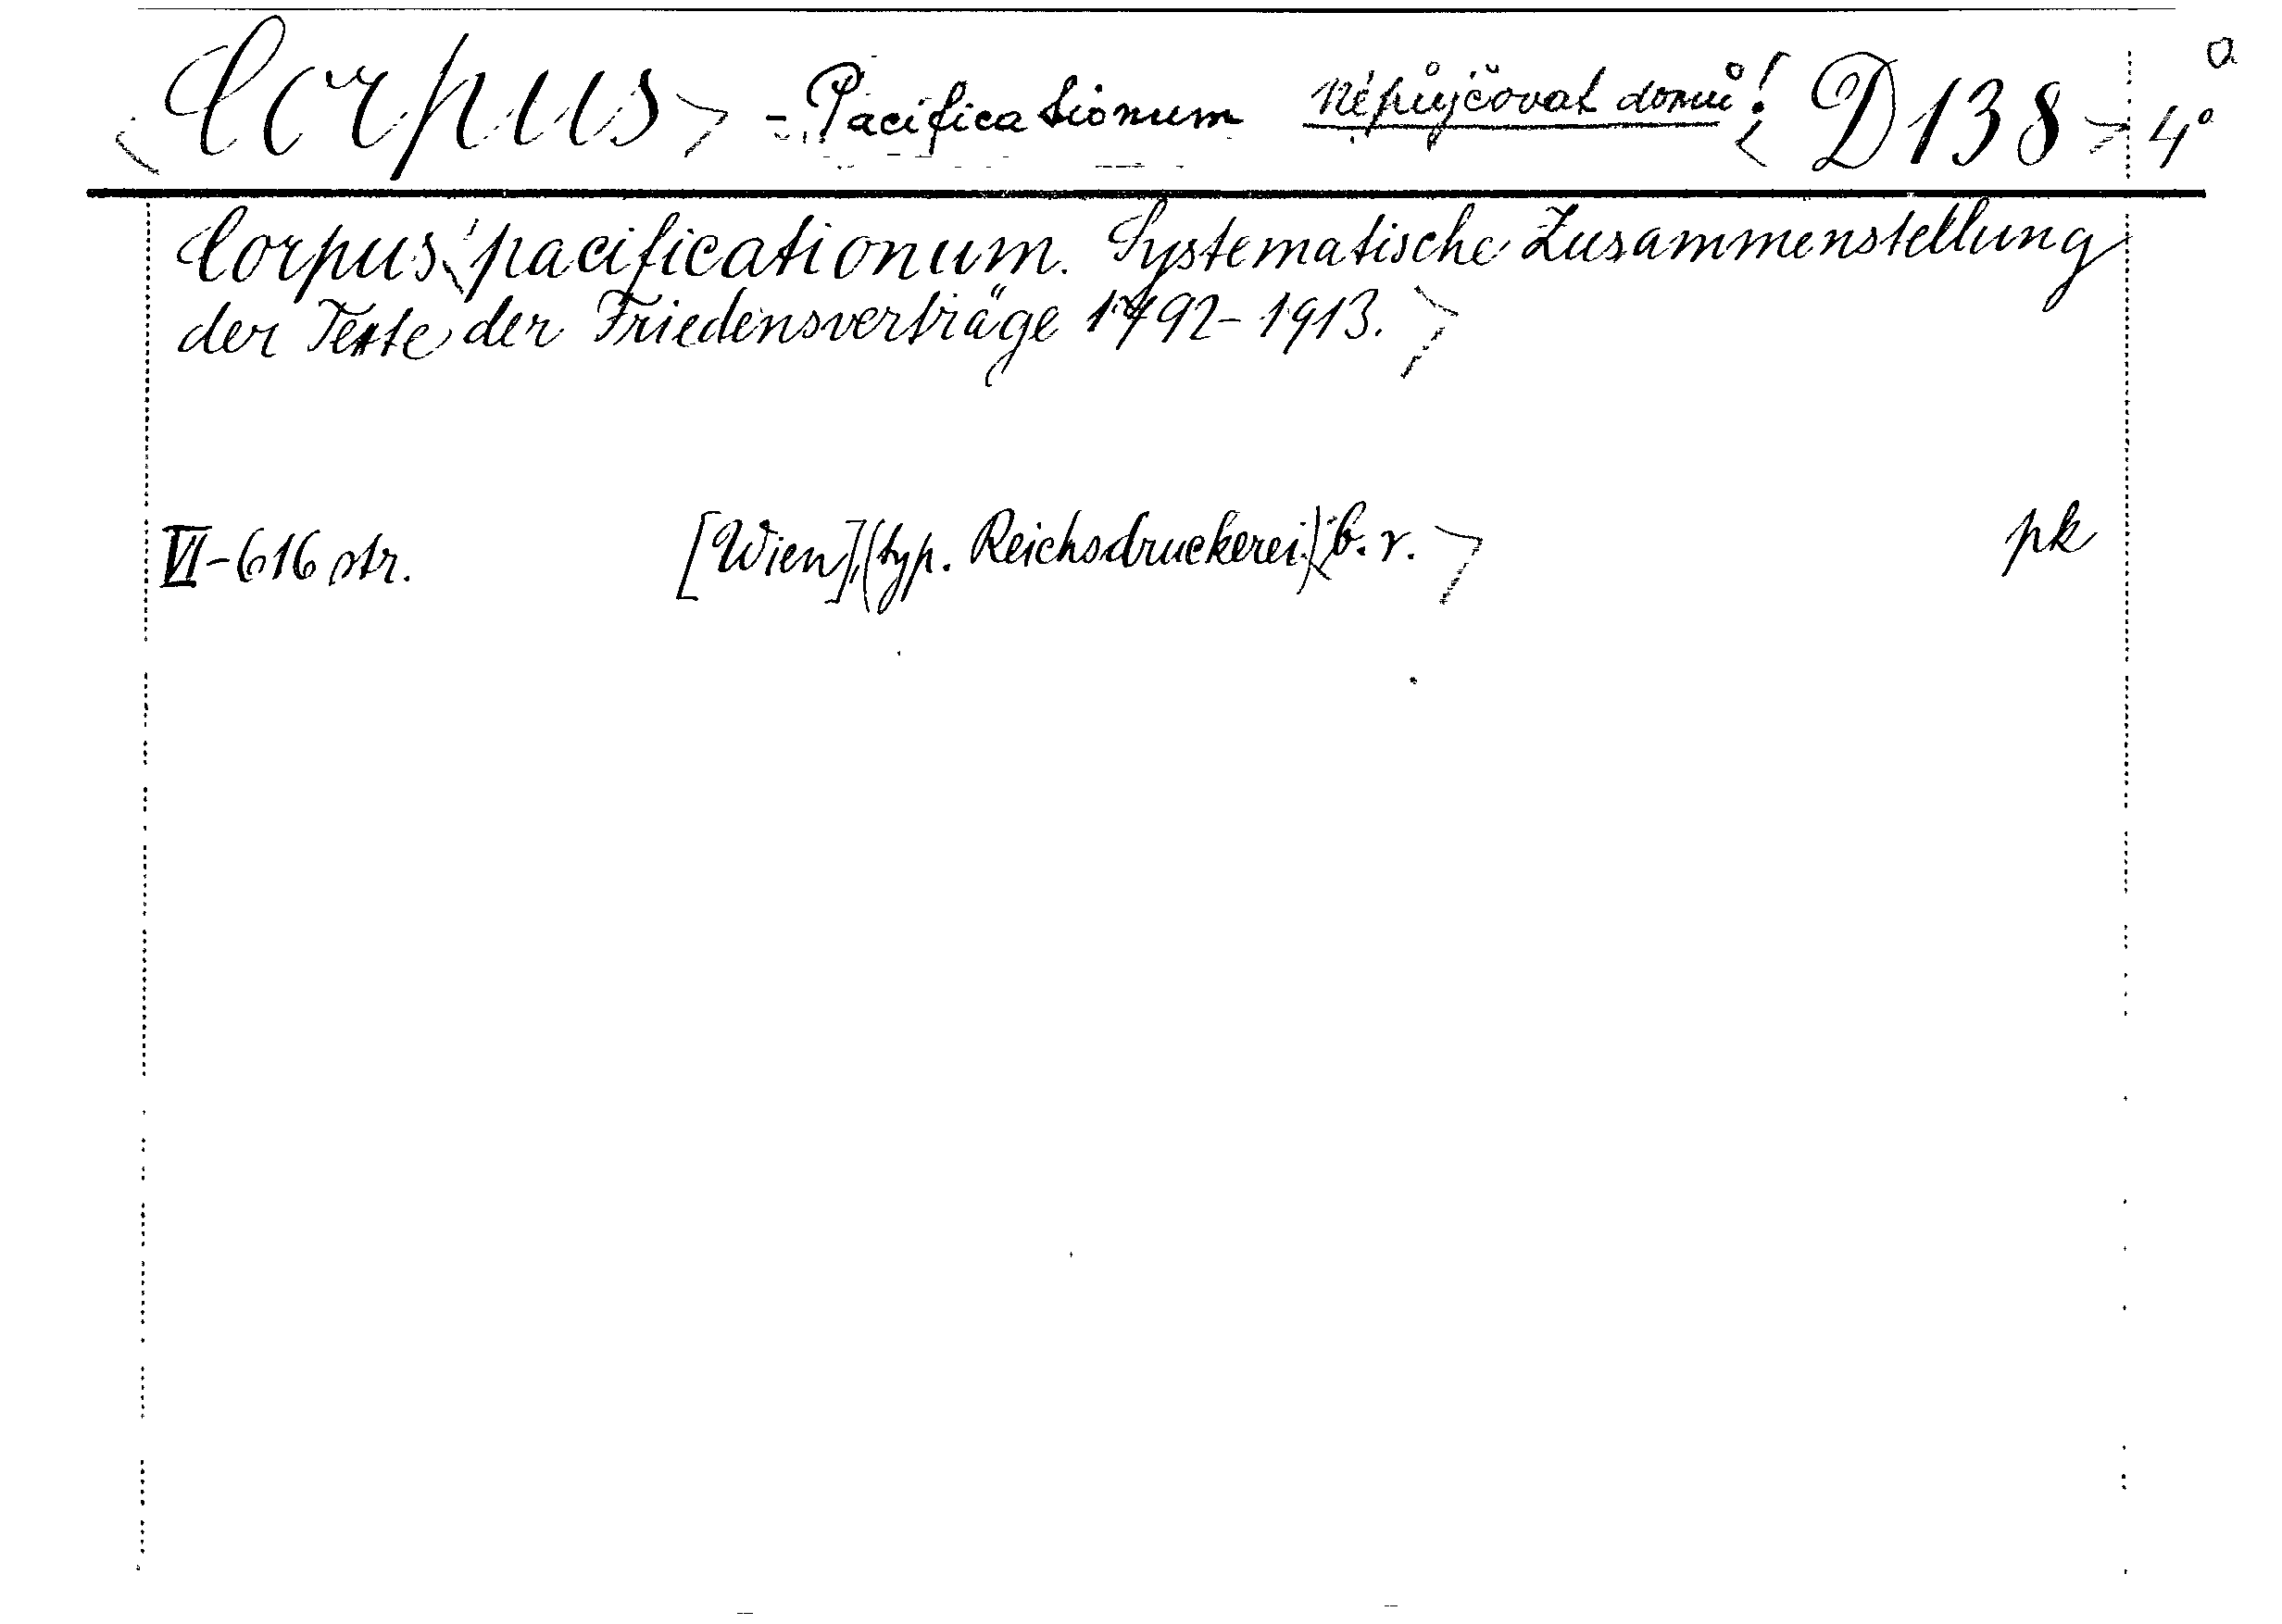 Corpus - Pacificationum Nepůjčovat domů! D 138 4° a
Corpus pacificationum. Systematische Zusammenstellung
der Texte der Friedensverträge 1792-1913.
VI-616 str. [Wien], (typ. Reichsdruckerei) b. r. pk